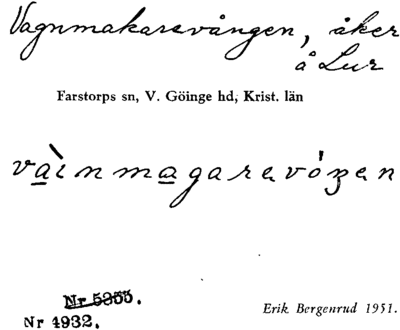 Vagnmakarevången, åker
å Lur
Farstorps sn, V. Göinge hd, Krist. län
va̱ìnma̱garevóŋen
Nr 5355.
Nr 4932.
Erik Bergenrud 1951.